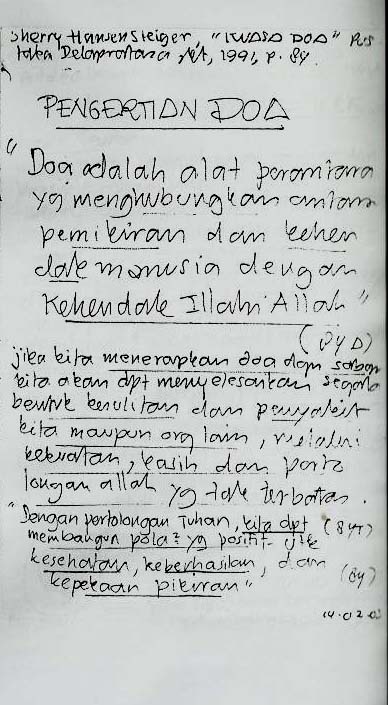 Sherry Hansen Steiger, "KUASA DOA" Pus
taka Delapratasa, Jkt, 1991, p. 84
PENGERTIAN DOA
"Doa adalah alat perantara
yg menghubungkan antara
pemikiran dan kehen
dak manusia dengan
Kehendak Illahi Allah"
(84 A)
jika kita menerapkan doa dgn sabar
kita akan dpt menyelesaikan segala
bentuk kesulitan dan penyakit
kita maupun org lain, melalui
kekuatan, kasih dan perto
longan allah yg tak terbatas.
"Dengan pertolongan Tuhan, kita dpt (84)
membangun pola² yg positif utk
kesehatan, keberhasilan, dan
kepekaan pikiran" (84)
14.02.03